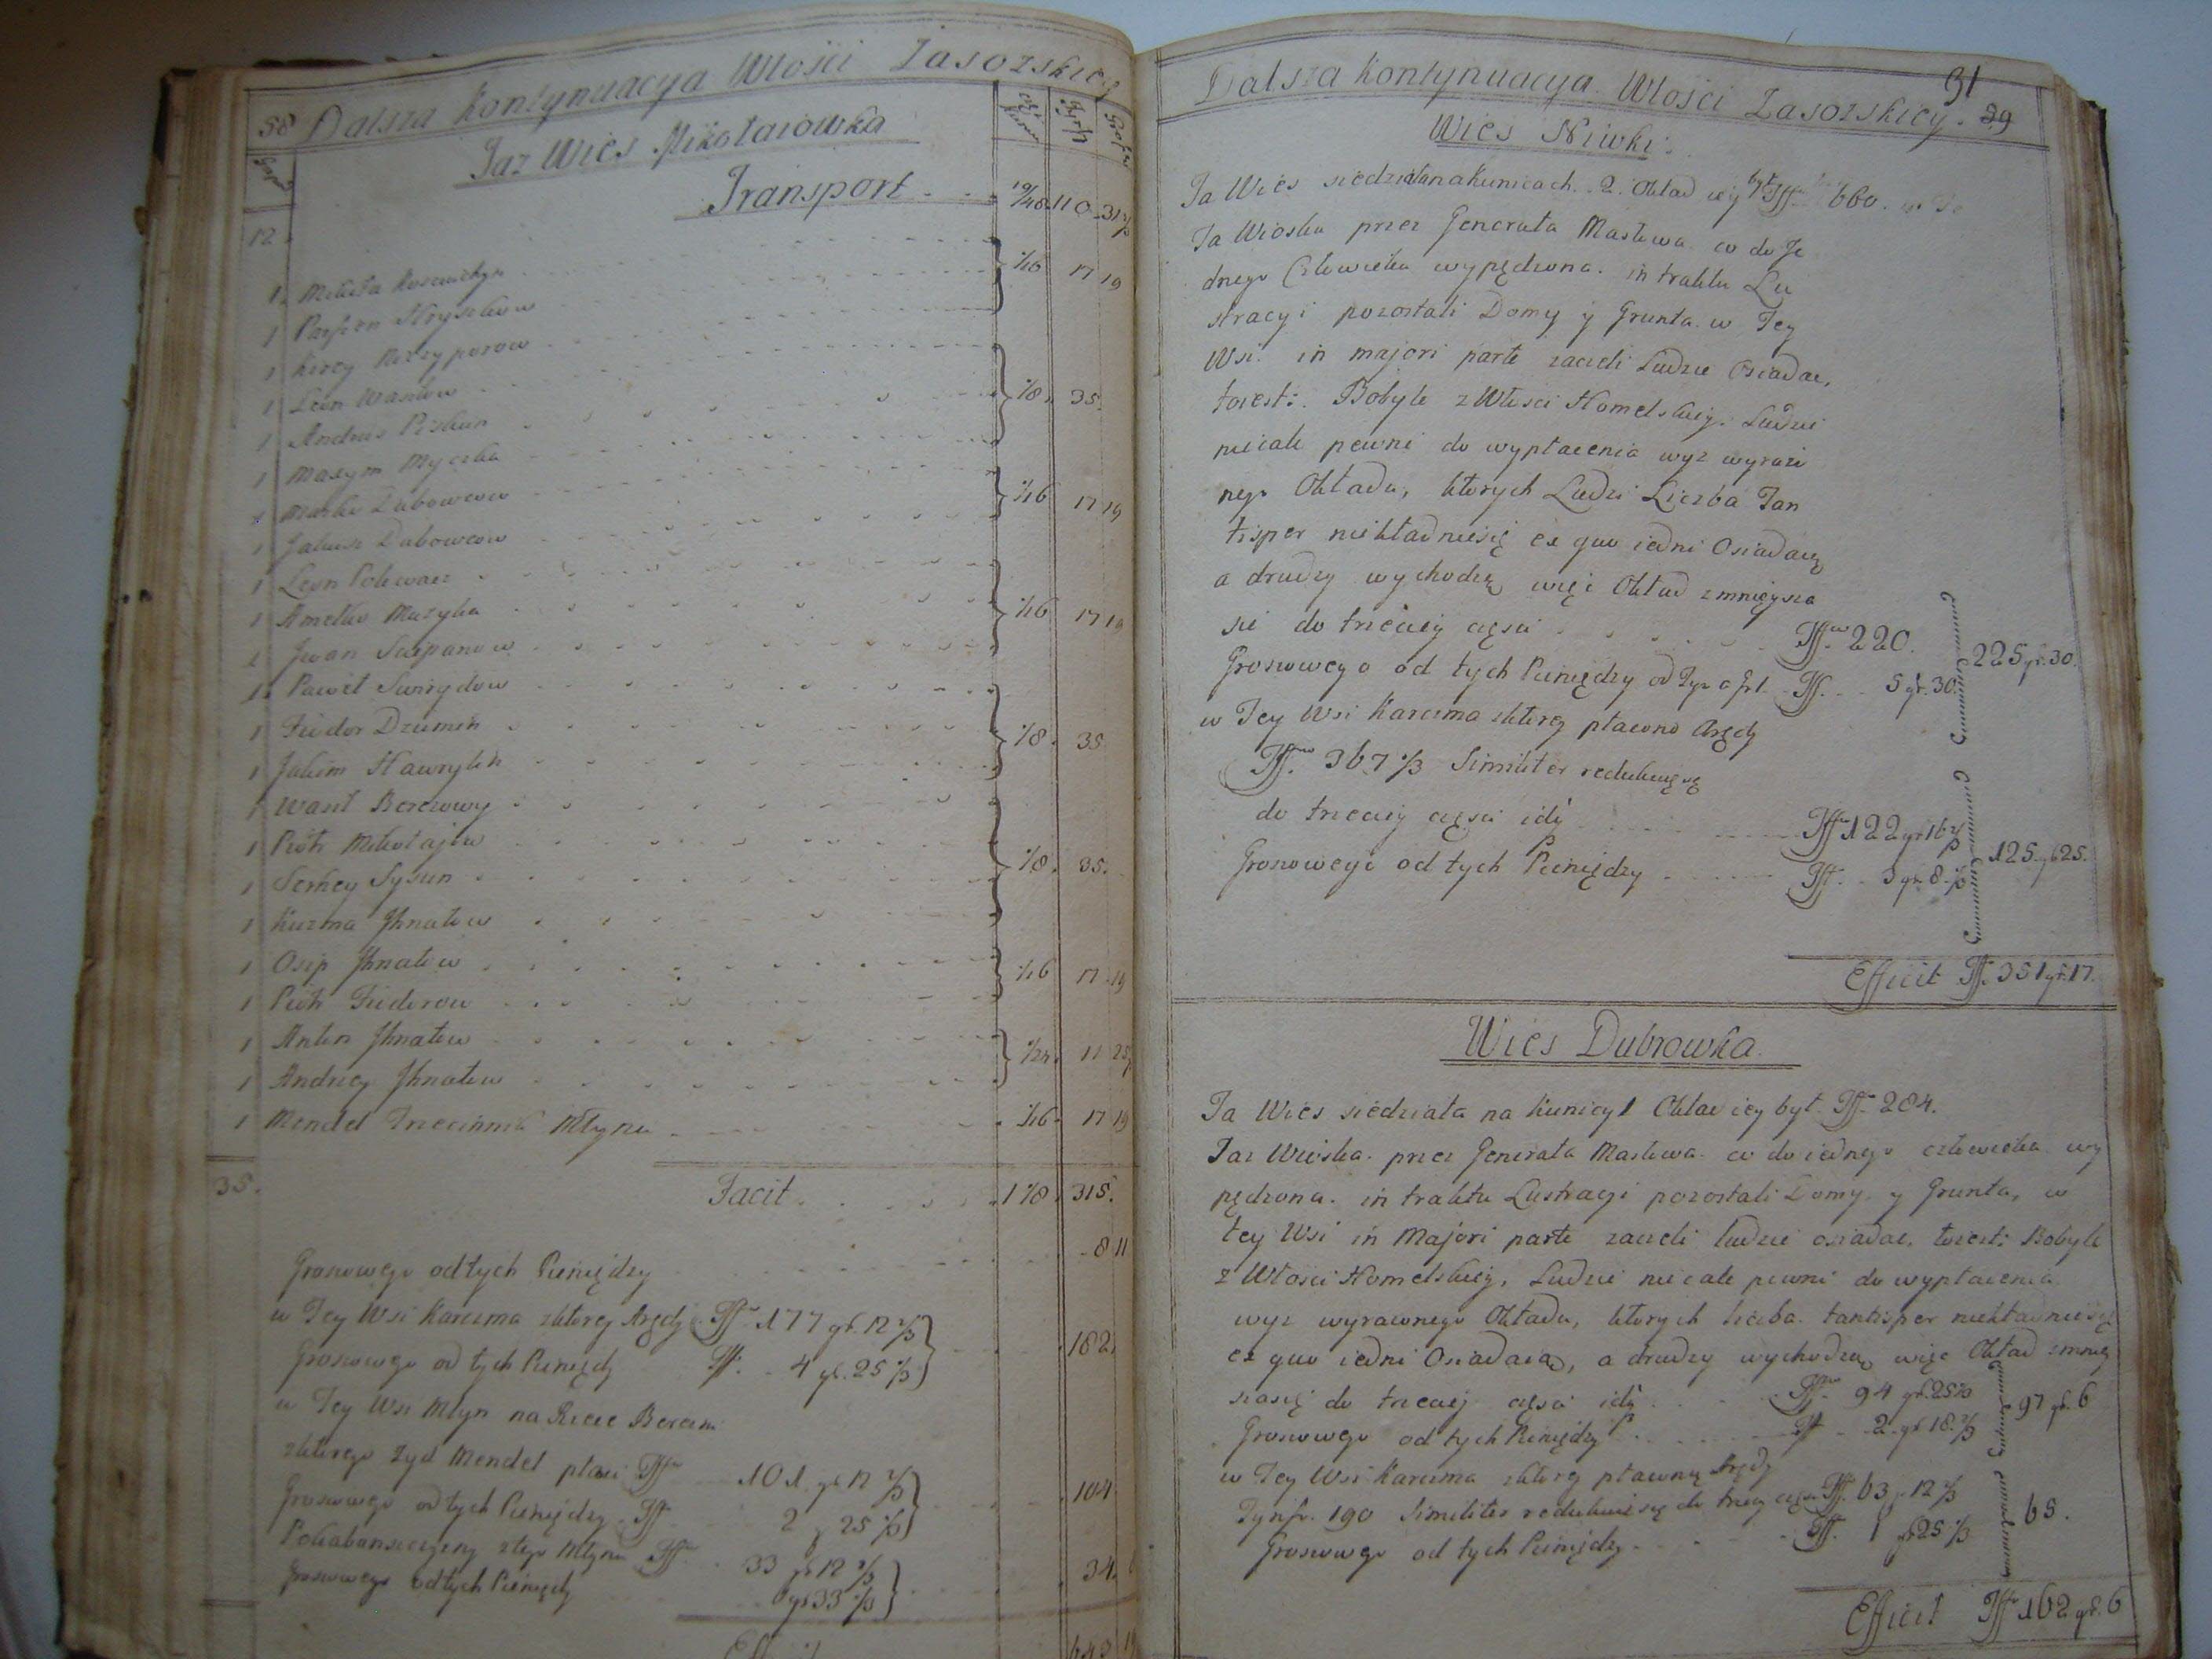 58 Dalsza Kontynuacya Włości Zasozskiey
Taz Wies Mikołaiowka
Transport 19/48 110 31 2/3
12
1 Mikita
1 Parfion Hryszkow
1 Kirey Nizzyporow
1 Leon Wasilew
1 Andrus Piskun
1 Maxym Myczka
1 Marko Dubowcow
1 Jakusz Dubowcow
1 Leon Polewacz
1 Amelko Muzyka
1 Jwan Sciepanow
1 Paweł Swirydow
1 Fiedor Dziumin
1 Jakim Hawrylin
1 Wasil Berezowy
1 Piotr Mikołajew
1 Serhey Sysun
1 Kuzma Jhnatew
1 Osip Jhnatew
1 Piotr Fiedorow
1 Anton Jhnatew
1 Andrey Jhnatew
1 Mendel Młyna
1/16 17 19
1/8 35
1/16 17 19
1/16 17 19
1/8 35
1/8 35
1/16 17 19
1/24 11 25
1/16 17 19
35. Facit 1 1/8 315
Groszowego od tych Pieniędzy 8 11
w Tey Wsi Karczma zktorey Arędy Tff 177 gr. 12 2/3
Groszowego od tych Pieniędzy Tff. 4 gr. 25 1/3 182
w Tey Wsi Młyn na Rzece
zktorego Zyd Mendel płaci Tff 101 gr 12 2/3
Groszowego od tych Pieniędzy Tff 2 gr 25 1/3 104
z tego Młyna Tff 33 gr 12 2/3
Groszowego od tych Pieniędzy 0 gr 33 1/3 34
643
Dalsza Kontynuacya Włości Zasozskiey. 31 29
Wies Niwki
Ta Wies siedziała na Kunicach. 2. Okład iey był Tff 660.
Ta Wioska przez Generała Masłowa co do Je
dnego Człowieka wypędzona. in traktu Lu
stracyi pozostali Domy y Grunta w Tey
Wsi. in majori parte zaczeli Ludzie Osiadac,
toiest: Bobyle z Włosci Homelskiey. Ludzi
niecale pewni do wypłacenia wyz wyrazo
nego Okładu, ktorych Ludzi Liczba Tan
tisper niekładniesię ex quo iedni Osiadaią
a drudzy wychodzą więc Okład zmnieysza
sie do trzeciey części Tff 220.
Groszowego od tych Pieniędzy od Tyn a gr 1 Tff. 5 gr. 30. 225 gr. 30.
w Tey Wsi Karczma zktorey płacono Arędy
Tff. 367 1/3 Similiter redukuię się
do trzeciey części idź Tff 122 gr 16 2/3
Groszowego od tych Pieniędzy Tff. 3 gr 8 1/3 125. gr 25.
Efficit Tff. 351 gr. 17.
Wies Dubrowka
Ta Wies siedziała na Kunicy 1 Okład iey był. Tff 284.
Taz Wioska. przez Generała Masłowa. co do iednego człowieka wy
pędzona. in traktu Lustracyi pozostali Domy. y Grunta, w
tey Wsi in Majori parte zaczeli ludzie osiadac. toiest: Bobyle
z Włosci Homelskiey, Ludzi niecale pewni do wypłacenia
wyz wyrazonego Okładu, ktorych liczba. tantisper niekładniesię
ex quo iedni Osiadaią, a drudzy wychodzą więc Okład zmniey
szasię do trzeciey części idź Tff 94 gr. 25 1/3
Groszowego od tych Pieniędzy Tff 2 gr 18 2/3 97 gr. 6
w Tey Wsi Karczma zktorey płacono Arędy
Tynfr. 190 Similiter redukuie się do trzeciey części Tff. 63 gr 12 2/3
Groszowego od tych Pieniędzy Tff. 1 gr 25 1/3 65.
Efficit Tff 162 gr. 6